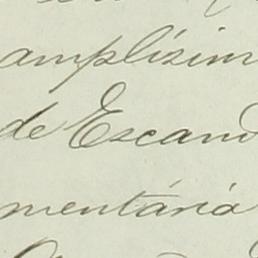 amplísim
de Escand
mentária